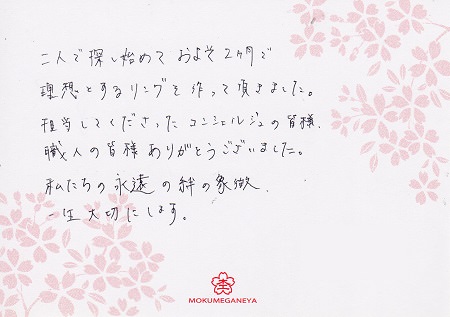 二人で探し始めて およそ2ヶ月で
理想とするリングを作って頂きました。
担当してくださった コンシェルジュの皆様、
職人の皆様 ありがとうございました。
私たちの永遠の絆の象徴、
一生大切にします。
MOKUMEGANEYA